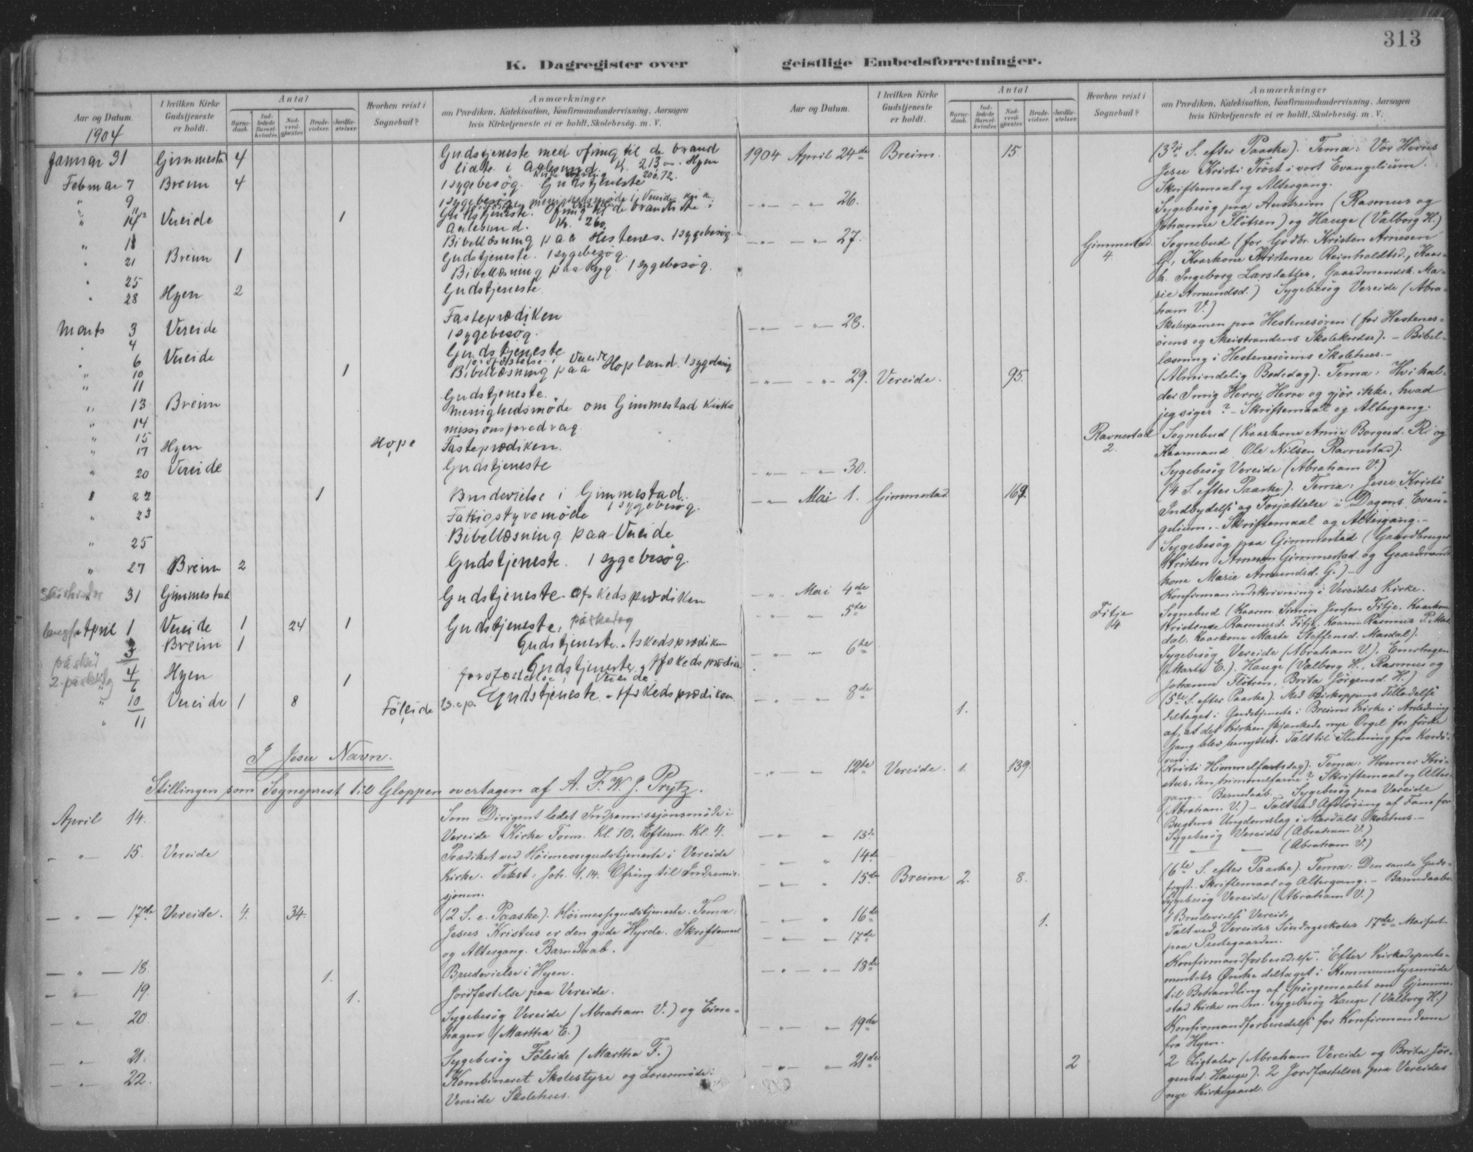 313
K. Dagregister over geistlige Embedsforretninger.
Aar og Datum.
I hvilken Kirke Gudstjeneste er holdt.
Antal
Hvorhen reist i Sognebud?
Anmærkninger
om Prædiken, Katekisation, Konfirmandundervisning, Aarsagen
hvis Kirketjeneste ei er holdt, Skolebesøg. m. V.
1904
Januar 31 Gimmestad 4 Gudstjeneste med ofring til de brand
lidte i Aalesund Kr. 213 Hyen
Februar 7 Breim 4 1 sygebesøg. Gudstjeneste
" 9
" 14 Vereide 1 Gudstjeneste. Ofring til de brandlidte i
Aalesund. Kr. 260
" 18 Bibellæsning paa Hestenes. 1 sygebesøg
" 21 Breim 1 Gudstjeneste. 1 sygebesøg.
" 25 Bibellæsning paa Ryg. 1 sygebesøg.
" 28 Hyen 2 Gudstjeneste
Marts 3 Vereide Fasteprædiken
" 4 1 sygebesøg.
" 6 Vereide Gudstjeneste
" 10 1 Bibellæsning paa Hopland. 1 sygebesøg
" 11
" 13 Breim Gudstjeneste.
" 14 Menighedsmøde om Gimmestad Kirke
" 15 Hope missionsforedrag
" 17 Hyen Fasteprædiken.
" 20 Vereide Gudstjeneste
" 22 1 Brudevielse i Gimmestad.
" 23 Fattigstyremøde 1 sygebesøg.
" 25 Bibellæsning paa Vereide
" 27 Breim 2 Gudstjeneste. 1 sygebesøg.
Skjærtorsdag 31 Gimmestad Gudstjeneste. Afskedsprædiken
langfr April 1 Vereide 1 24 1 Gudstjeneste,
påskedag 3 Breim 1 påskedag Gudstjeneste. Afskedsprædiken
2 påskedag 4 Hyen Gudstjeneste. Afskedsprædiken
6 1 Jordfæstelse, Vereide.
" 10 Vereide 1 8 Gudstjeneste. Afskedsprædiken
" 11 Føleide
I Jesu Navn.
Stillingen som Sogneprest til Gloppen overtagen af A. F. W. J. Prytz.
April 14. Som Dirigent ledet Indremissionsmøde i
Vereide Kirke Form. Kl. 10, Eftem. Kl. 4.
" 15. Vereide Prædiket ved Høimessegudstjeneste i Vereide
Kirke. Tekst: Joh. 4, 14. Ofring til Indremis-
sjonen.
" 17de Vereide. 4. 34. (2 S. e. Paaske). Høimessegudstjeneste. Tema:
Jesus Kristus er den gode Hyrde. Skriftemaal
og Altergang. Barnedaab.
" 18. 1. Brudevielse i Hyen.
" 19. 1. Jordfæstelse paa Vereide.
" 20 Sygebesøg Vereide (Abraham V.) og Eime-
hagen (Martha E.)
" 21. Sygebesøg Føleide (Martha F.)
" 22. Kombineret Skolestyre og Lærermøde i
Vereide Skolehus.
Aar og Datum.
I hvilken Kirke Gudstjeneste er holdt.
Antal
Hvorhen reist i Sognebud?
Anmærkninger
om Prædiken, Katekisation, Konfirmandundervisning, Aarsagen
hvis Kirketjeneste ei er holdt, Skolebesøg. m. V.
1904 April 24de Breim. 15. (3die S. efter Paaske). Tema: Vor Herres
Jesu Kristi Trøst i vort Evangelium.
Skriftemaal og Altergang.
26. Sygebesøg paa Austreim (Rasmus og
Johanne Flöten) og Hauge (Valborg H.)
27. Gimmestad 4. Sognebud (for Gdbr. Kristen Arnesen
G., Kaarkone Kristence Reinholdtsd., Kaar-
k. Ingeborg Larsdatter, Gaardmandsk. Ma-
rie Amundsd.) Sygebesøg Vereide (Abra-
ham V.)
28. Skoleexamen paa Hestenesøren (for Hestenes-
ørens og Skeistrandens Skolekredse). – Bibel-
læsning i Hestenesørens Skolehus. –
29. Vereide. 95. (Almindelig Bededag). Tema: Hvi kal-
der I mig Herre, Herre og gjør ikke, hvad
jeg siger? – Skriftemaal og Altergang.
Ravnestad 2. Sognebud (Kaarkone Anne Borgesd. R. og
Kaarmand Ole Nilsen Ravnestad).
30. Sygebesøg Vereide (Abraham V.)
Mai 1. Gimmestad 169. (4 S. efter Paaske). Tema: Jesu Kristi
Indbydelse og Forjættelse i Dagens Evan-
gelium. – Skriftemaal og Altergang. –
Sygebesøg paa Gimmestad (Gaardbruger
Kristen Arnesen Gimmestad og Gaardmands-
kone Marie Amundsd. G.) –
Mai 4de Konfirmandindskrivning i Vereides Kirke.
5te Fitje 4 Sognebud (Kaarm. Simon Jensen Fitje, Kaarkone
Kristense Rasmusd. Fitje, Kaarm. Rasmus P. Mar-
dal, Kaarkone Marte Steffensd. Mardal).
6te Sygebesøg Vereide (Abraham V.) Eimehagen
(Marte E.), Hauge (Valborg H., Rasmus og
Johanne Flöten, Brita Jørgensd. H.)
8de 1. (5te S. efter Paaske). Med Biskoppens Tilladelse
deltaget i Gudstjeneste i Breims Kirke i Anledning
af, at det Kirken skjænkede nye Orgel for første
Gang blev benyttet. Talt til Slutning fra Kordø-
ren.
12te Vereide. 1. 139. (Kristi Himmelfartsdag). Tema: Hvorner Kri-
stus den himmelfarne? Skriftemaal og Alter-
gang. – Barnedaab. – Sygebesøg paa Vereide
(Abraham V.) – Talt ved Afsløring af Fane for
Bygdens Ungdomslag i Mardals Skolehus –
13de Sygebesøg Vereide (Abraham V.)
14de — " — (Abraham V.)
15de Breim 2. 8. (6te S. efter Paaske). Tema: Den sande Guds-
frygt. Skriftemaal og Altergang. – Barnedaab.
Sygebesøg Vereide (Abraham V.)
16de 1. 1 Brudevielse Vereide
17de Talt ved Vereides Søndagsskoles 17de Maifest
paa Prestegaarden.
18de Konfirmandforberedelse. Efter Kirkedeparte-
mentets Ønske deltaget i Kommunestyremøde
til Behandling af Spørgsmaalet om Gimme-
stad Kirke m. m. Sygebesøg Hauge (Valborg H.)
19de Konfirmandforberedelse for Konfirmanderne
fra Hyen.
21de 2 2 Ligtaler (Abraham Vereide og Brita Jør-
gensd. Hauge). 2 Jordfæstelser paa Vereides
nye Kirkegaard.